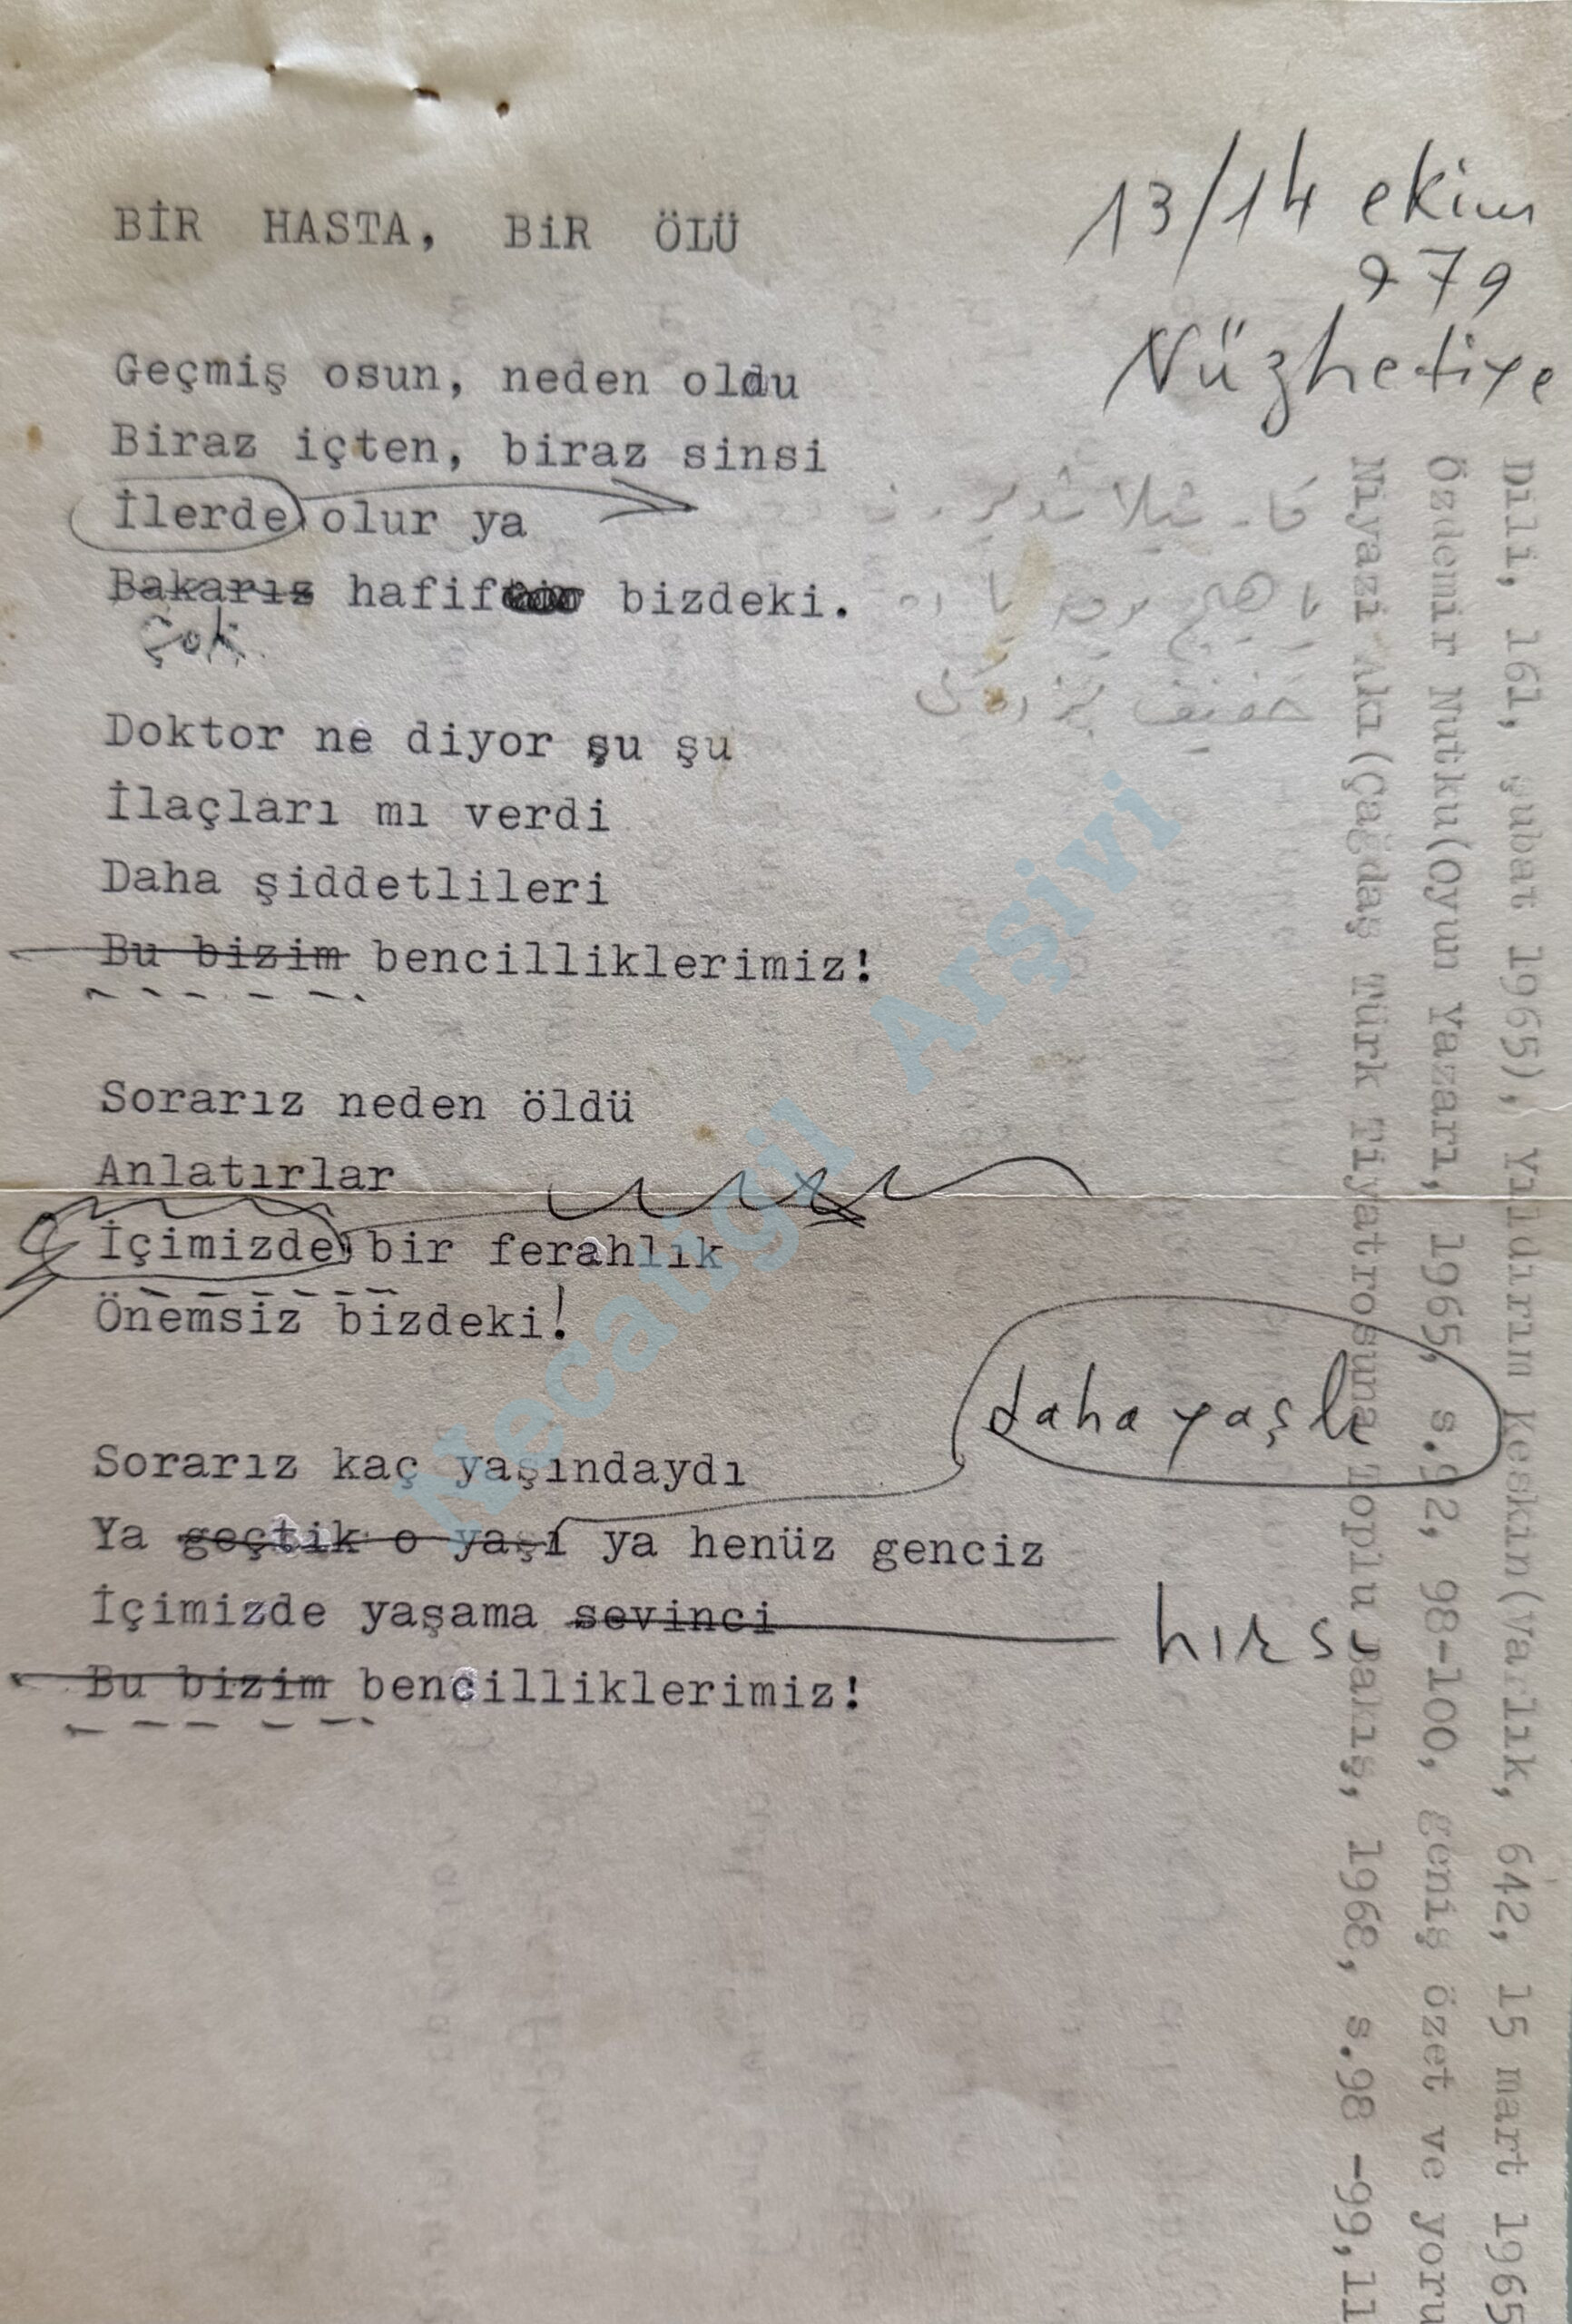 BİR HASTA, BiR ÖLÜ
13/14 ekim
979
Nüzhetiye
Geçmiş osun, neden oldu
Biraz içten, biraz sinsi
İlerde olur ya
Bakarız hafif bizdeki.
Çok
Doktor ne diyor şu şu
İlaçları mı verdi
Daha şiddetlileri
Bu bizim bencilliklerimiz!
Sorarız neden öldü
Anlatırlar
İçimizde bir ferahlık
Önemsiz bizdeki!
daha yaşlı
Sorarız kaç yaşındaydı
Ya geçtik o yaşı ya henüz genciz
İçimizde yaşama sevinci
hırsı
Bu bizim bencilliklerimiz!
Dili, 161, şubat 1965), Yıldırım Keskin(Varlık, 642, 15 mart 1965
Özdemir Nutku(Oyun Yazarı, 1965, s.92, 98-100, geniş özet ve yoru
Niyazi Akı(Çağdaş Türk Tiyatrosuna Toplu Bakış, 1968, s.98 -99,11
Necatigil Arşivi